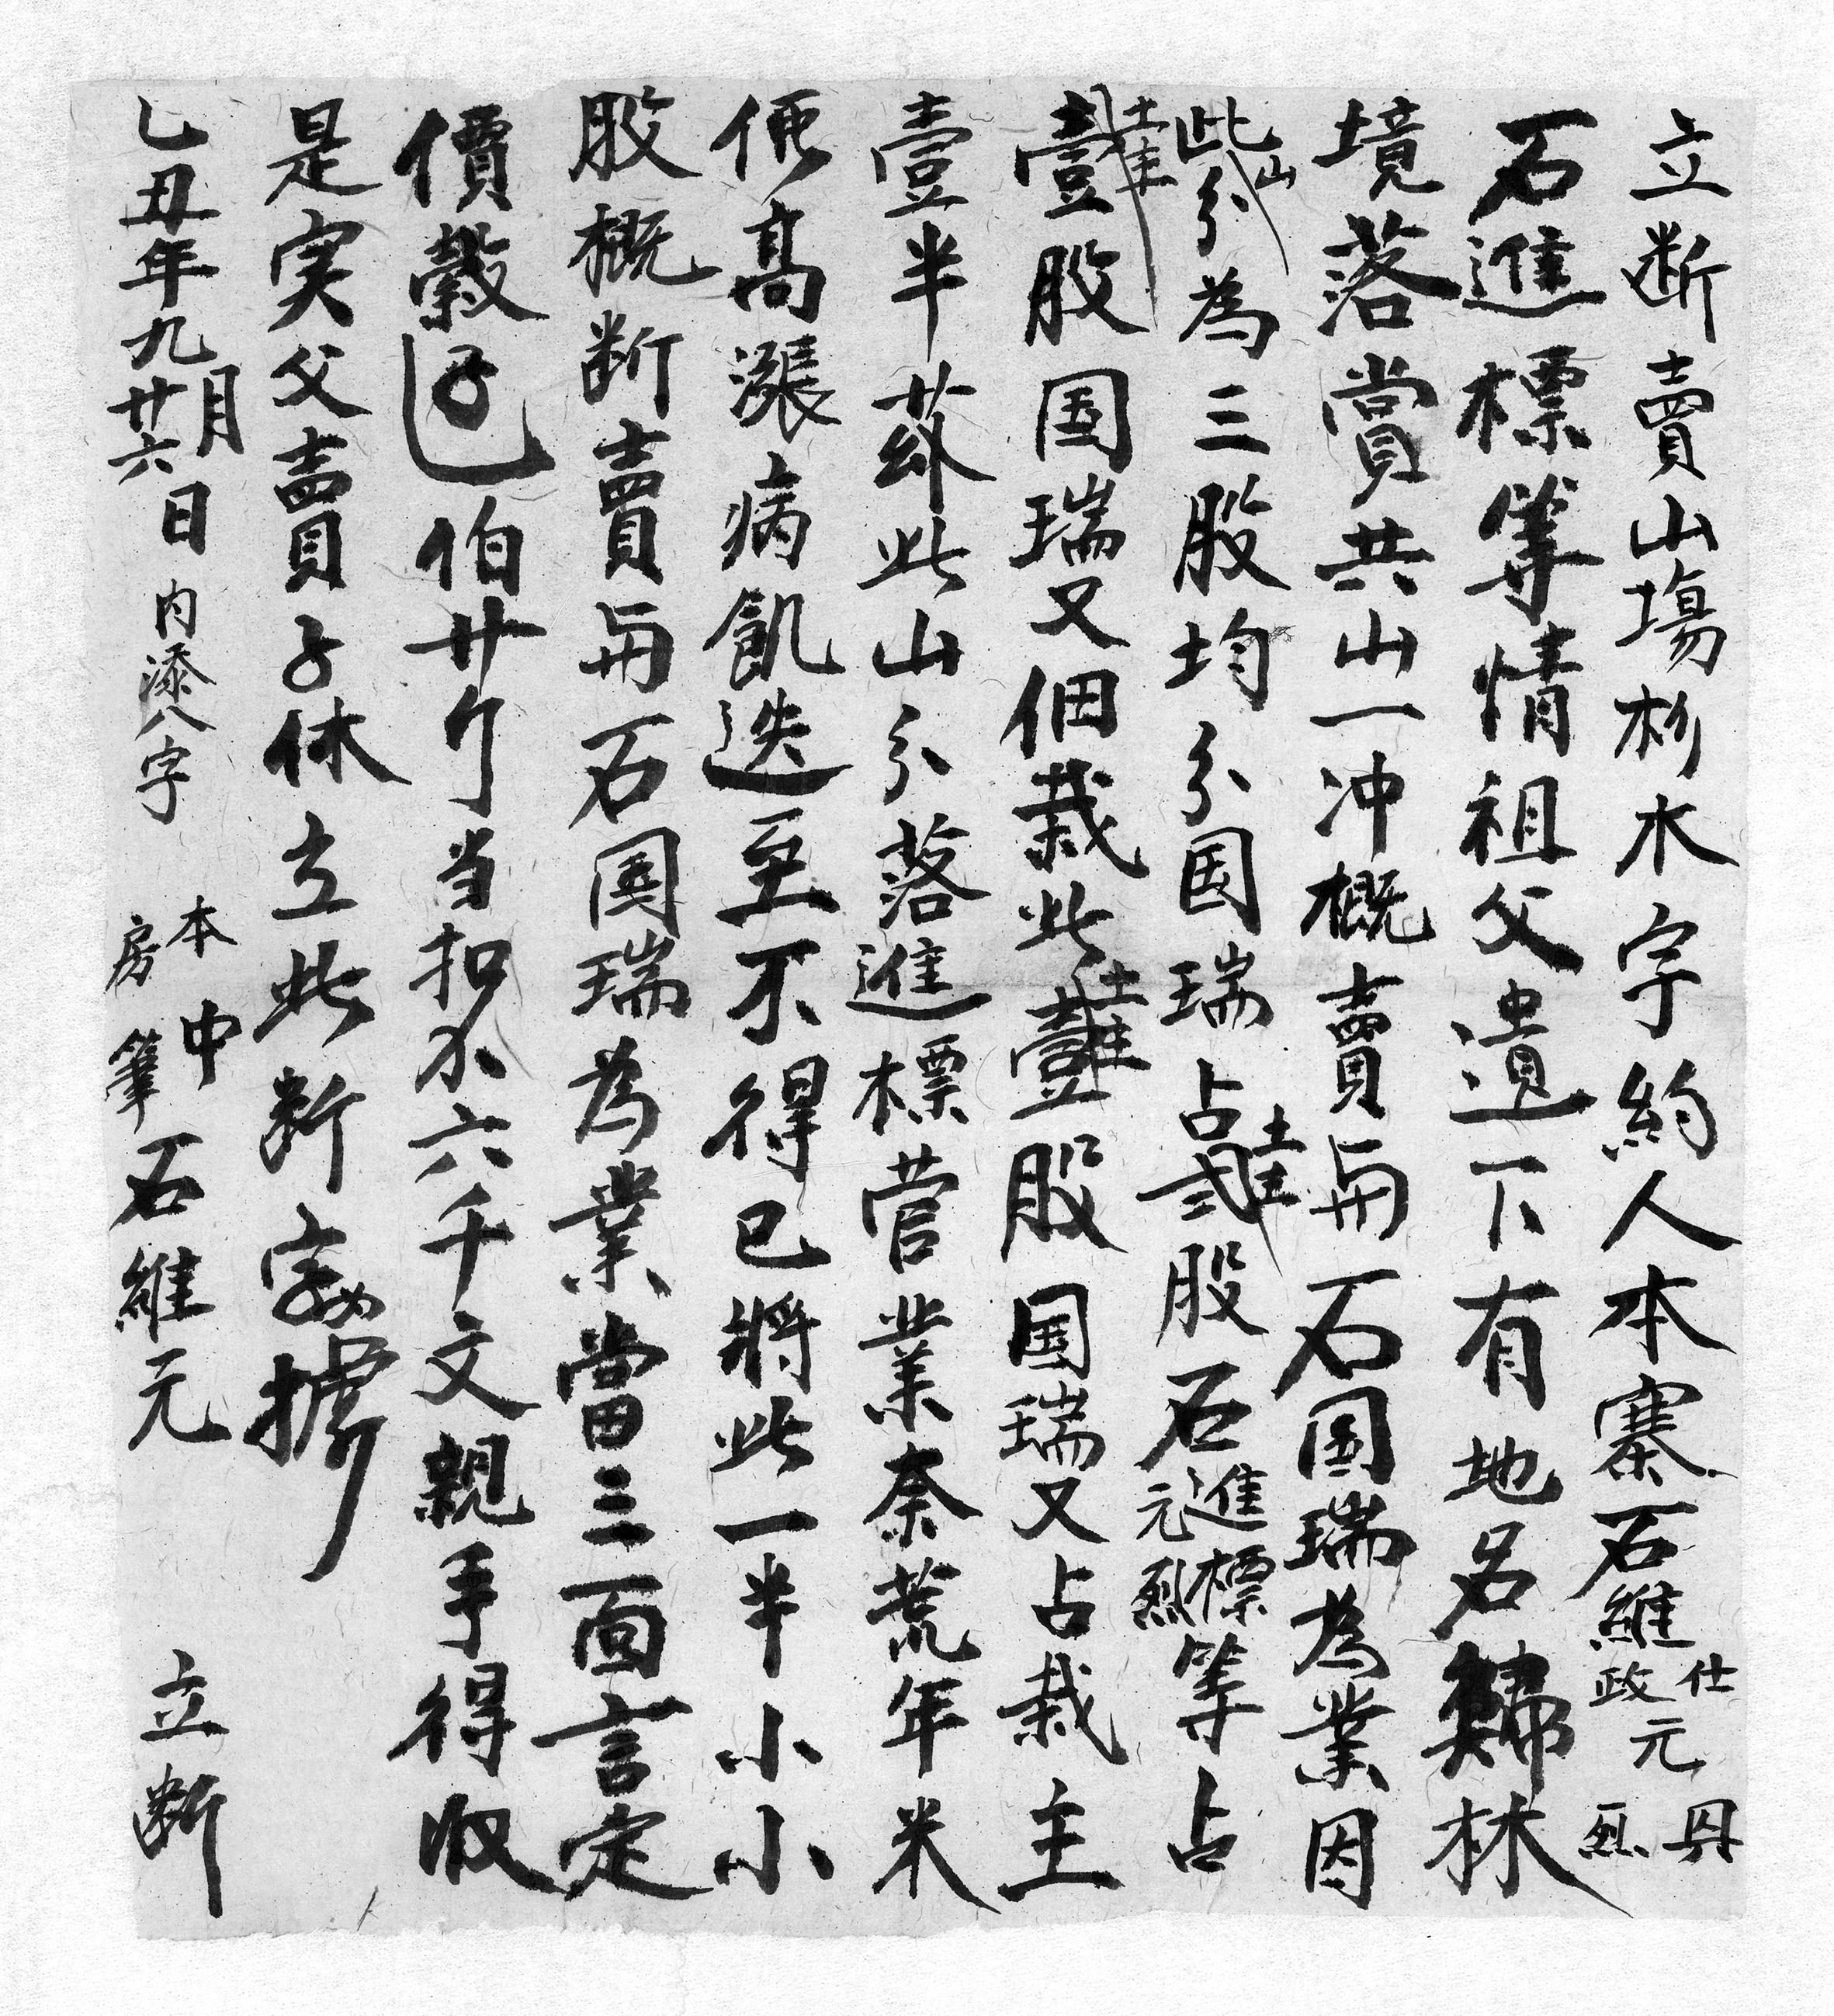 立断賣山塲杉木字約人本寨石維仕政元丹烈
石進標等情祖父遺下有地名歸林
境落賞共山一冲概賣與石国瑞為業因
此山分為三股均分国瑞占貳股石進標元烈等占
壹股国瑞又佃栽此壹股国瑞又占栽主
壹半茲此山分落進標菅業奈荒年米
価高漲病飢迭至不得已將此一半小小
股概断賣與石国瑞為業當三面言定
價穀伯廿斤当扣六千文親手得收
是实父賣子休立此断字據
乙丑年九月廿六日 内添八字 本房中筆石維元 立断